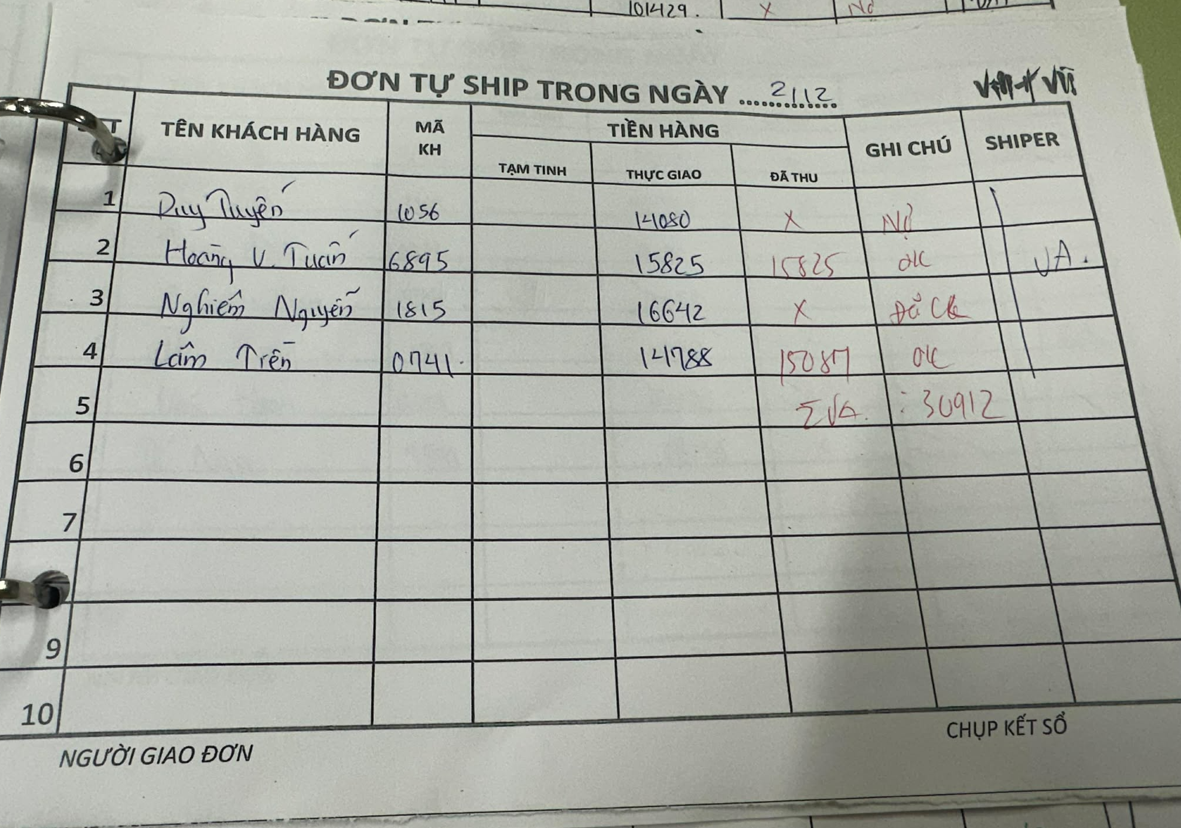 101429. X Nợ
ĐƠN TỰ SHIP TRONG NGÀY ....2/12....
TÊN KHÁCH HÀNG MÃ KH TIỀN HÀNG GHI CHÚ SHIPER
TẠM TINH THỰC GIAO ĐÃ THU
1 Duy Tuyến 1056 14080 X Nợ
2 Hoàng V. Tuấn 6895 15825 15825 OK VA.
3 Nghiêm Nguyễn 1815 16642 X Đã Ck
4 Lâm Trên 0741. 14788 15087 OK
5 ΣVA. : 30912
6
7
9
10
NGƯỜI GIAO ĐƠN CHỤP KẾT SỔ